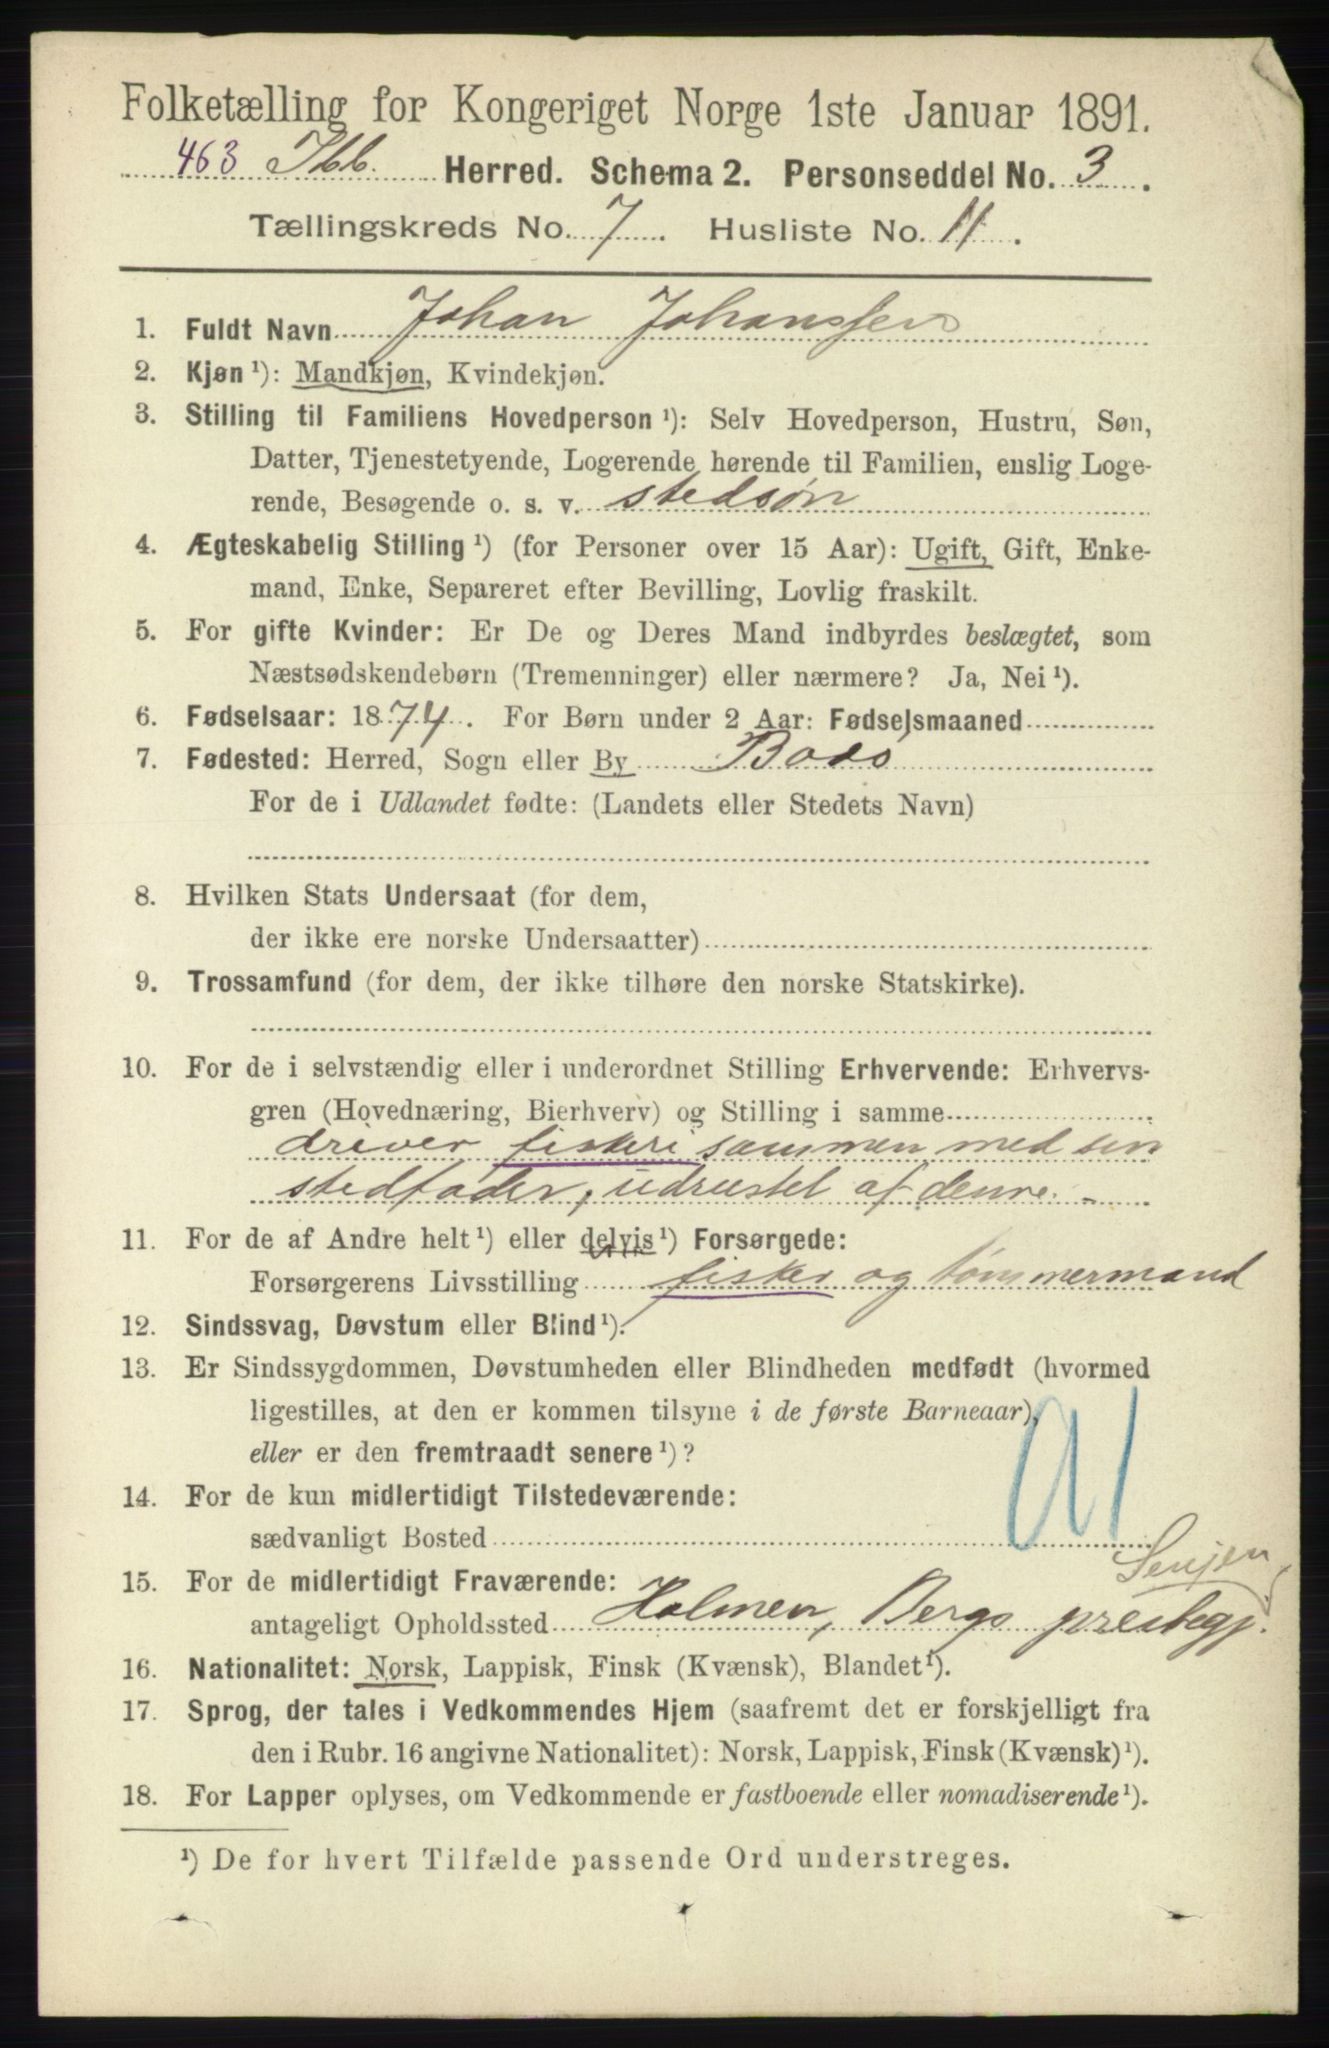 Folketælling for Kongeriget Norge 1ste Januar 1891.
463 Ibb. Herred. Schema 2. Personseddel No. 3.
Tællingskreds No. 7. Husliste No. 11.
1. Fuldt Navn Johan Johanssen
2. Kjøn ¹): Mandkjøn, Kvindekjøn.
3. Stilling til Familiens Hovedperson ¹): Selv Hovedperson, Hustru, Søn,
Datter, Tjenestetyende, Logerende hørende til Familien, enslig Loge-
rende, Besøgende o. s. v. stedsøn
4. Ægteskabelig Stilling ¹) (for Personer over 15 Aar): Ugift, Gift, Enke-
mand, Enke, Separeret efter Bevilling, Lovlig fraskilt.
5. For gifte Kvinder: Er De og Deres Mand indbyrdes beslægtet, som
Næstsødskendebørn (Tremenninger) eller nærmere? Ja, Nei ¹).
6. Fødselsaar: 1874. For Børn under 2 Aar: Fødselsmaaned
7. Fødested: Herred, Sogn eller By Bodø
For de i Udlandet fødte: (Landets eller Stedets Navn)
8. Hvilken Stats Undersaat (for dem,
der ikke ere norske Undersaatter)
9. Trossamfund (for dem, der ikke tilhøre den norske Statskirke).
10. For de i selvstændig eller i underordnet Stilling Erhvervende: Erhvervs-
gren (Hovednæring, Bierhverv) og Stilling i samme
driver fiskeri sammen med sin
stedfader, udrustet af denne. -
11. For de af Andre helt ¹) eller delvis ¹) Forsørgede:
Forsørgerens Livsstilling fisker og tømmermand
12. Sindssvag, Døvstum eller Blind ¹).
13. Er Sindssygdommen, Døvstumheden eller Blindheden medfødt (hvormed
ligestilles, at den er kommen tilsyne i de første Barneaar),
eller er den fremtraadt senere ¹)?
14. For de kun midlertidigt Tilstedeværende:
sædvanligt Bosted
Senjen
15. For de midlertidigt Fraværende:
antageligt Opholdssted Holmen, Bergs prestegj.
16. Nationalitet: Norsk, Lappisk, Finsk (Kvænsk), Blandet ¹).
17. Sprog, der tales i Vedkommendes Hjem (saafremt det er forskjelligt fra
den i Rubr. 16 angivne Nationalitet): Norsk, Lappisk, Finsk (Kvænsk) ¹).
18. For Lapper oplyses, om Vedkommende er fastboende eller nomadiserende ¹).
¹) De for hvert Tilfælde passende Ord understreges.